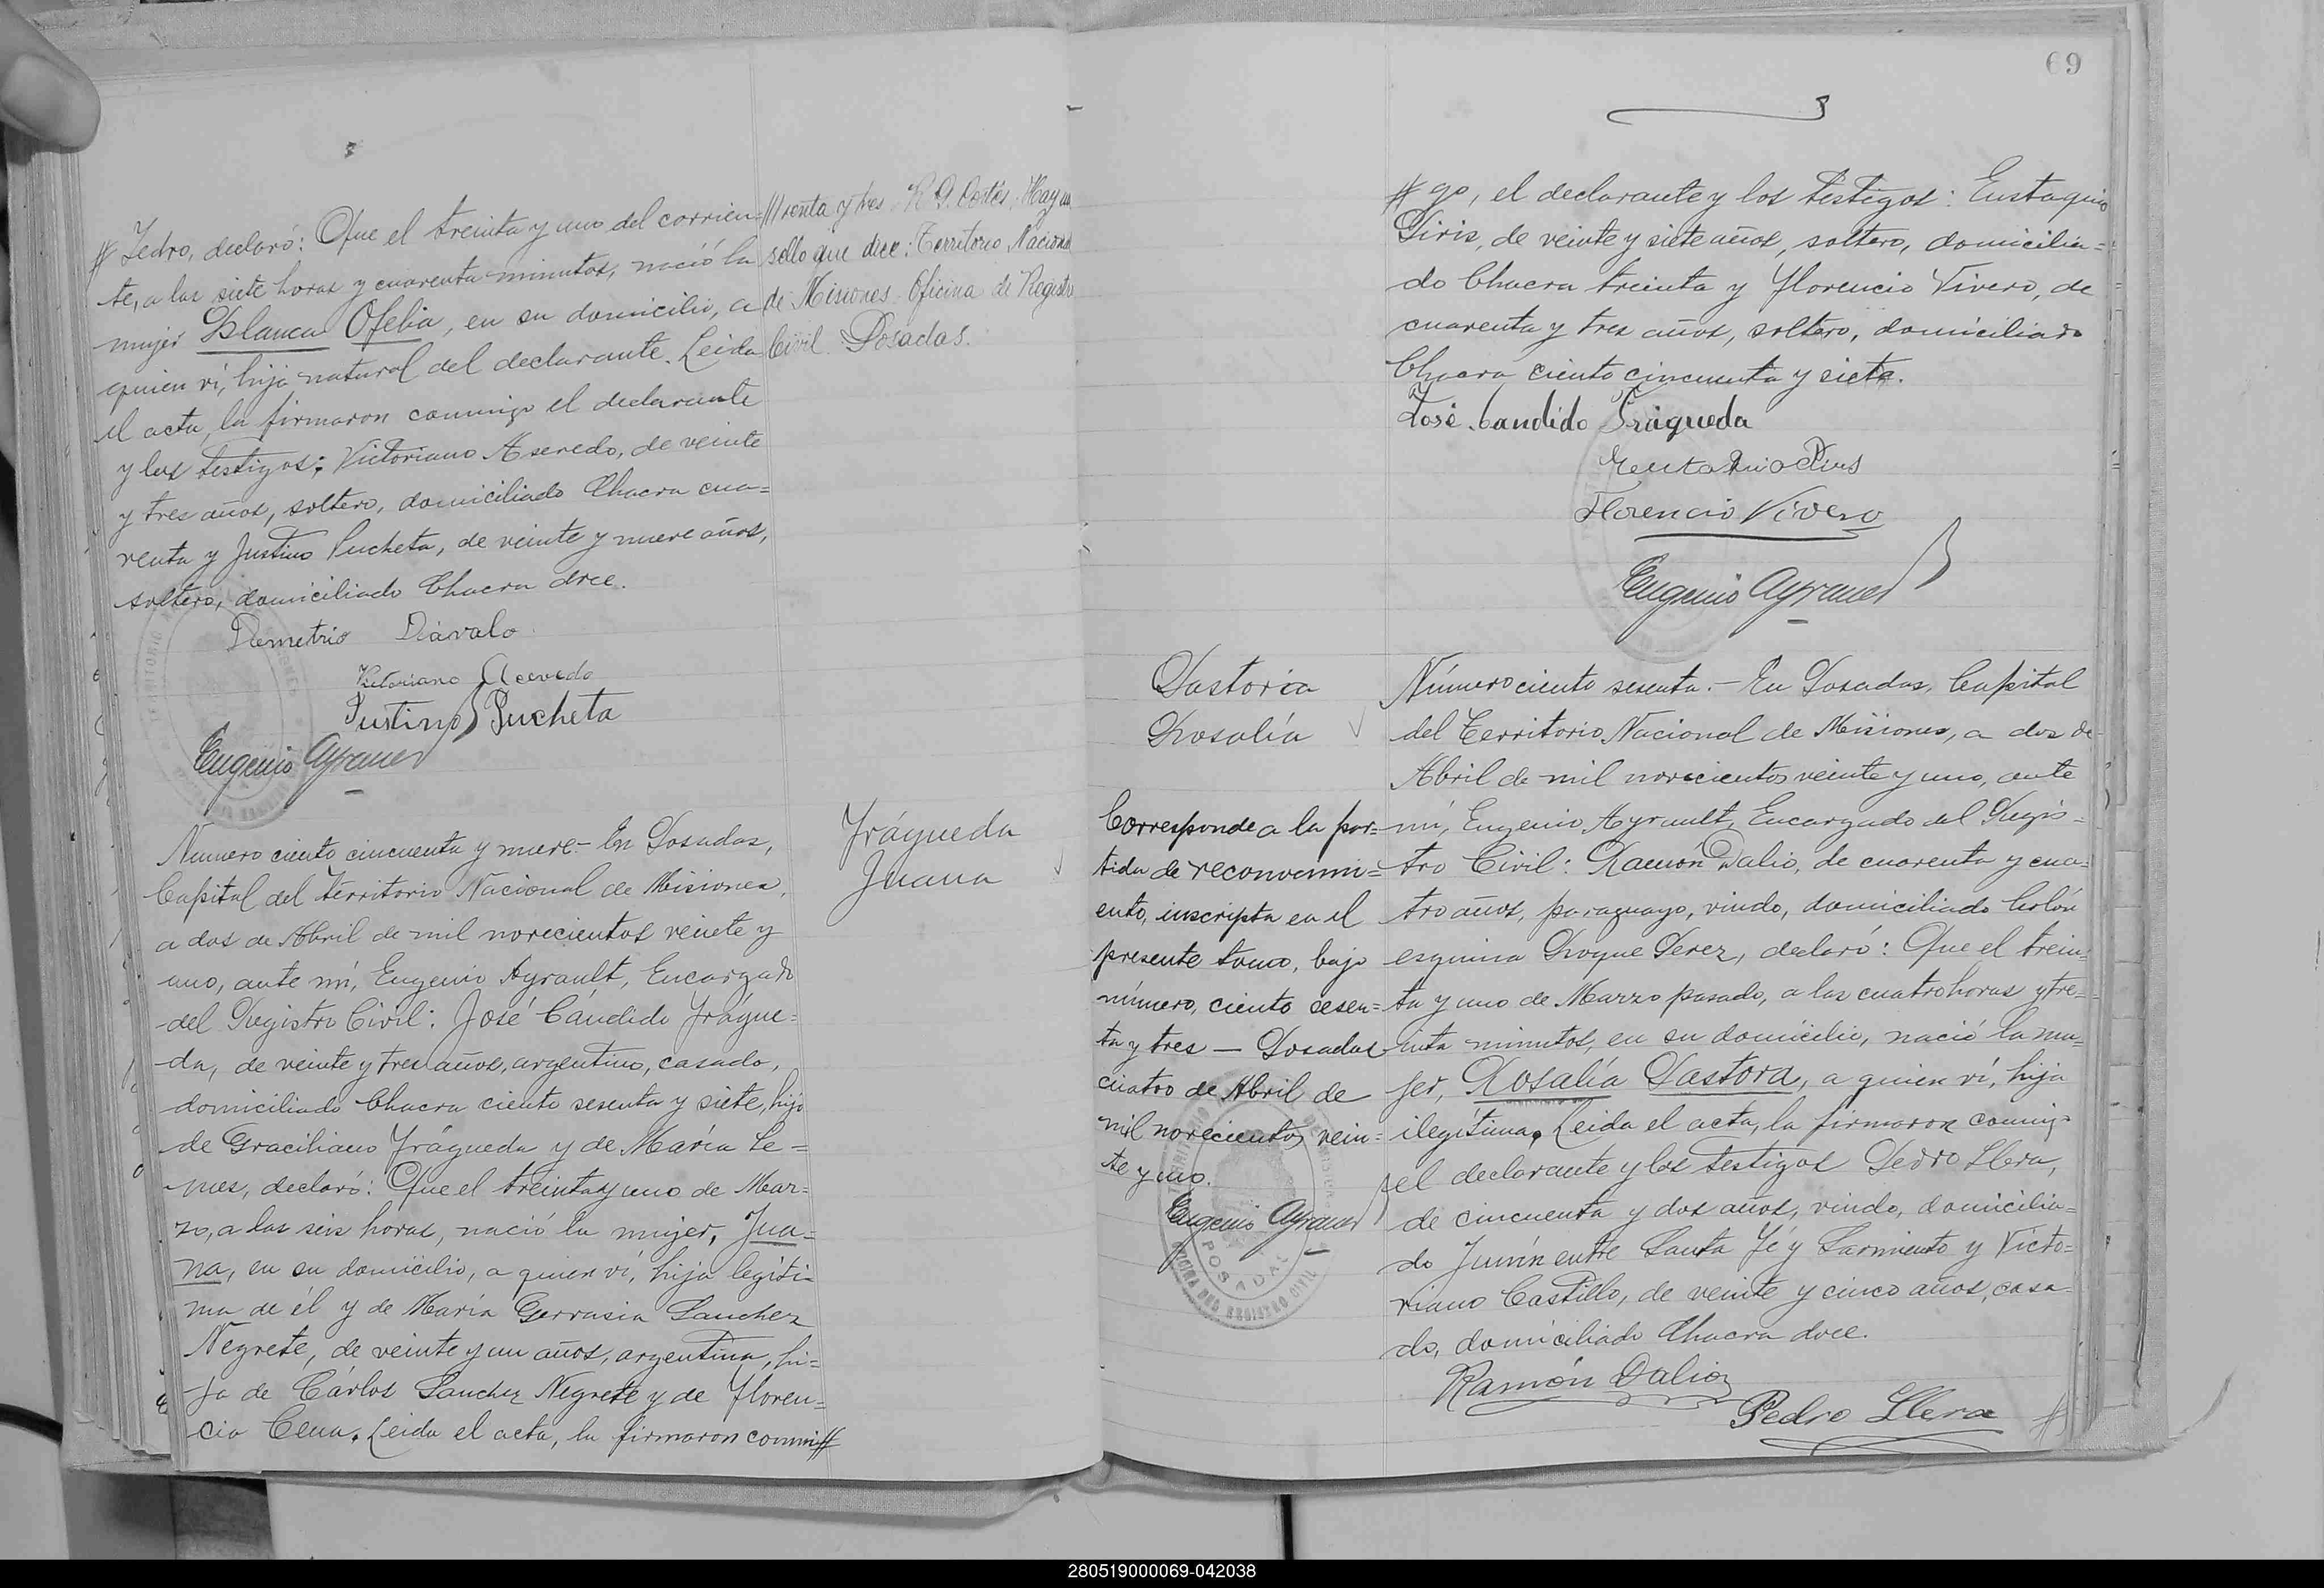 # Pedro, declaró: Que el treinta y uno del corrien-
te, a las siete horas y cuarenta minutos, nació la
mujer Blanca Ofelia, en su domicilio, a
quien ví, hija natural del declarante. Leida
el acta, la firmaron conmigo el declarante
y los testigos: Victoriano Asevedo, de veinte
y tres años, soltero, domiciliado Chacra cua=
renta y Justino Pucheta, de veinte y nueve años,
soltero, domiciliado Chacra doce.
Demetrio Dávalo
Victoriano Acevedo
Justino Pucheta
Eugenio Ayrault
/// renta y tres R. G. Cortés. Hay un
sello que dice: Territorio Nacional
de Misiones Oficina de Registro
Civil. Posadas.
Número ciento cincuenta y nueve.- En Posadas,
Capital del Territorio Nacional de Misiones,
a dos de Abril de mil novecientos veinte y
uno, ante mí, Eugenio Ayrault, Encargado
del Registro Civil: José Cándido Frágue=
da, de veinte y tres años, argentino, casado,
domiciliado Chacra ciento sesenta y siete, hijo
de Graciliano Frágueda y de María Le=
mes, declaró: Que el treinta y uno de Mar=
zo, a las seis horas, nació la mujer, Jua=
na, en su domicilio, a quien ví, hija legíti-
ma de él y de María Gervasia Sanchez
Negrete, de veinte y un años, argentina, hi=
ja de Cárlos Sanchez Negrete y de Floren=
cia Cena. Leida el acta, la firmaron conmi#
Frágueda
Juana
69
# go, el declarante y los testigos: Eustaquio
Piris, de veinte y siete años, soltero, domicilia=
do Chacra treinta y Florencio Vivero, de
cuarenta y tres años, soltero, domiciliado
Chacra ciento cincuenta y siete.
José Candido Frágueda
Eustaquio Piris
Florencio Vivero
Eugenio Ayrault
Pastora
Rosalía
Corresponde a la par=
tida de reconocimi=
ento, inscripta en el
presente tomo, bajo
número, ciento sesen=
ta y tres — Posadas
cuatro de Abril de
mil novecientos vein=
te y uno.
Eugenio Ayrault
POSADAS
OFICINA DEL REGISTRO CIVIL
Número ciento sesenta.- En Posadas, Capital
del Territorio Nacional de Misiones, a dos de
Abril de mil novecientos veinte y uno, ante
mí, Eugenio Ayrault, Encargado del Regis-
tro Civil: Ramón Dalio, de cuarenta y cua=
tro años, paraguayo, viudo, domiciliado Colón
esquina Roque Perez, declaró: Que el trein=
ta y uno de Marzo pasado, a las cuatro horas y tre=
inta minutos, en su domicilio, nació la mu=
jer, Rosalía Pastora, a quien ví, hija
ilegítima. Leida el acta, la firmaron conmigo
el declarante y los testigos Pedro Llera,
de cincuenta y dos años, viudo, domicilia=
do Junín entre Santa Fé y Sarmiento y Victo=
riano Castillo, de veinte y cinco años, casa=
do, domiciliado Chacra doce.
Ramón Dalio
Pedro Llera #
280519000069-042038